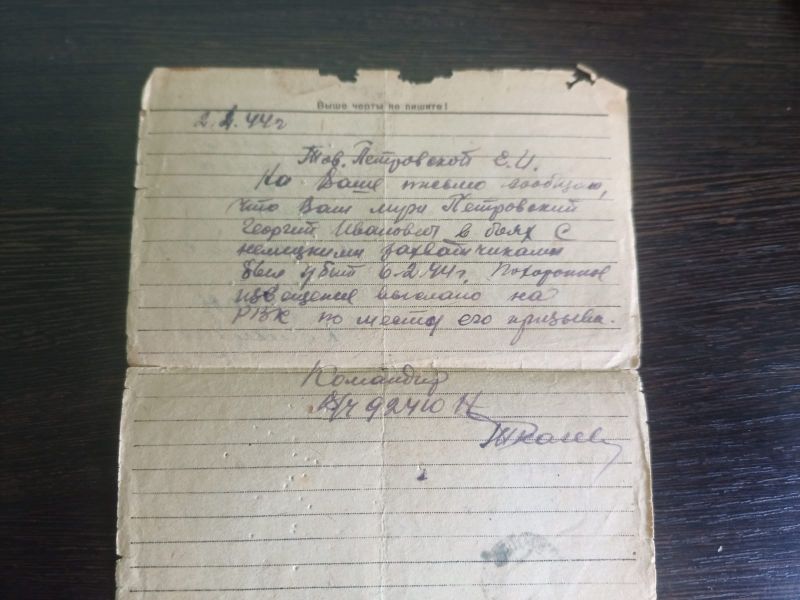 Выше черты не пишите!
2.4.44г
Тов. Петровской Е.И.
На Ваше письмо сообщаю,
что Ваш муж Петровский
Георгий Иванович в боях с
немецкими захватчиками
был убит 6.2.44г. Похоронное
извещение выслано на
РВК по месту его призыва.
Командир
В/ч 92410 Н